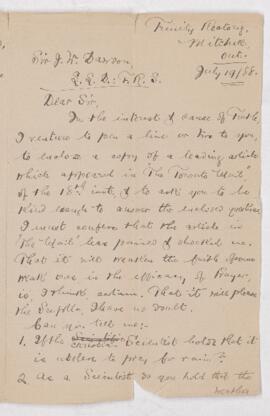 Trinity Rectory,
Mitchell
Ont.
July 19/88.
Sir J. W. Dawson,
L.L.D: F.R.S.
Dear Sir,
In the interest & cause of Truth,
I venture to pen a line or two to you,
to enclose a copy of a leading article
which appeared in The Toronto "Mail"
of the 18th inst, & to ask you to be
kind enough to answer the enclosed
I must confess that the article in
the "Mail" has pained & shocked me.
That it will weaken the faith of some
weak ones in the efficacy of Prayer,
is, I think certain. That it will please
the Sceptic, I have no doubt.
Can you tell me:-
1. If the Christian Scientist holds that it
is useless to pray for rain?
2. As a Scientist do you hold that the
weather